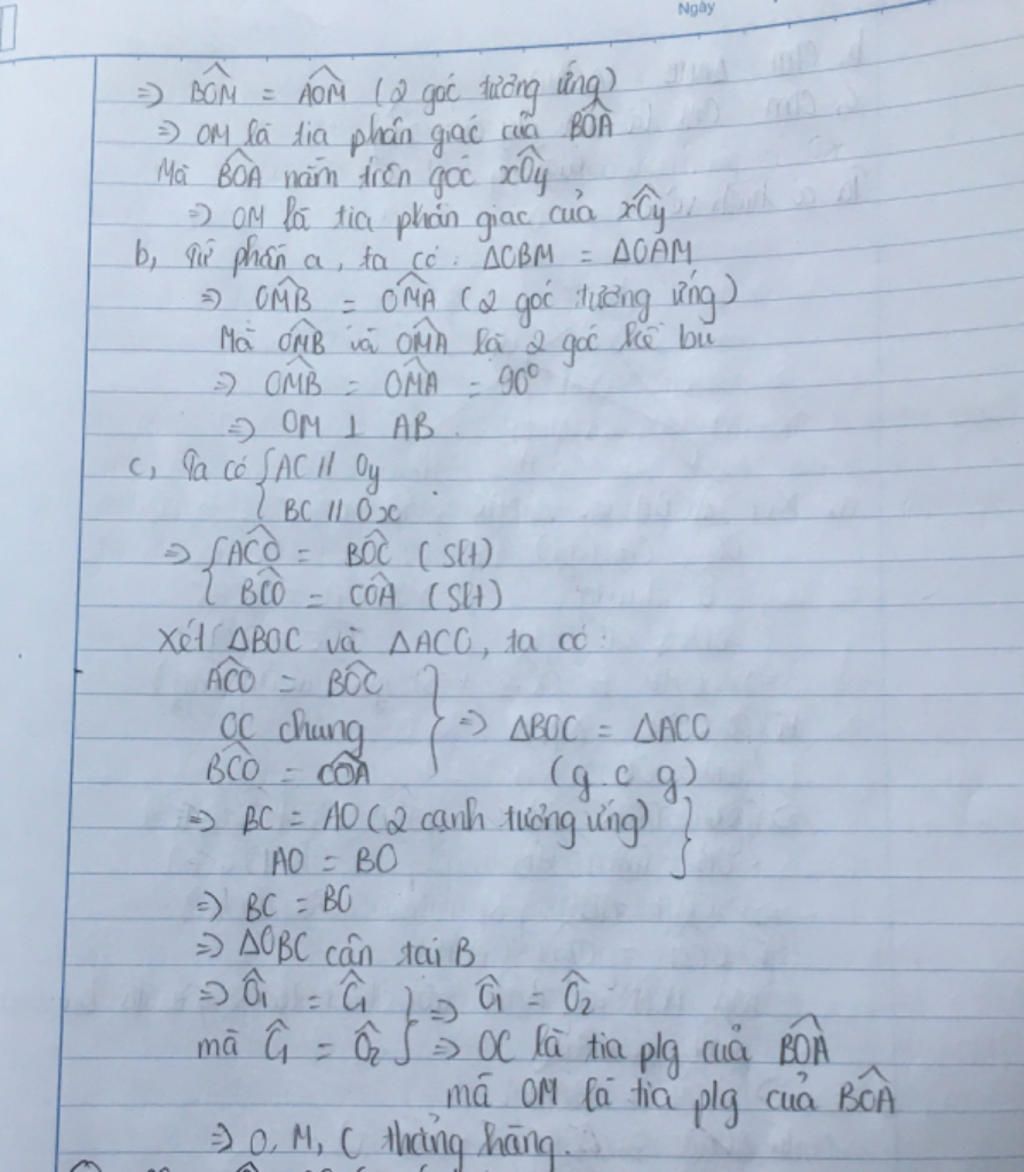 Ngày
=> B̂OM = ÂOM (2 góc tương ứng)
=> OM là tia phân giác của B̂OA
Mà B̂OA nằm trên góc xÔy
=> OM là tia phân giác của xÔy
b, Từ phần a, ta có : ΔOBM = ΔOAM
=> ÔMB = ÔMA (2 góc tương ứng)
Mà ÔMB và ÔMA là 2 góc kề bù
=> ÔMB = ÔMA = 90°
=> OM ⊥ AB.
c, Ta có { AC // Oy
{ BC // Ox
=> { ÂCO = B̂OC (slt)
{ B̂CO = ĈOA (slt)
Xét ΔBOC và ΔACO, ta có:
ÂCO = B̂OC
OC chung } => ΔBOC = ΔACO
B̂CO = ĈOA (g.c.g)
=> BC = AO (2 cạnh tương ứng) }
AO = BO
=> BC = BO
=> ΔOBC cân tại B
=> Ô₁ = Ĉ₁ } => Ô₁ = Ô₂
mà Ĉ₁ = Ô₂ } => OC là tia plg của B̂OA
mà OM là tia plg của B̂OA
=> O, M, C thẳng hàng.